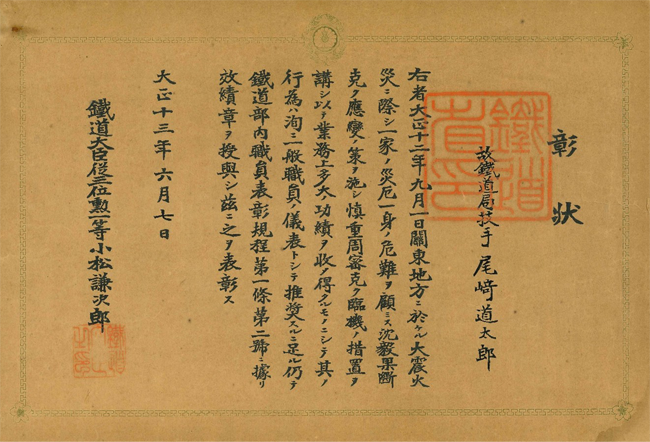 彰狀
故鐵道局技手 尾﨑道太郎
右者大正十二年九月一日關東地方ニ於ケル大震火
災ニ際シ一家ノ災厄一身ノ危難ヲ顧ミス沈毅果斷
克ク應變ノ策ヲ施シ慎重周密克ク臨機ノ措置ヲ
講シ以テ業務上多大ノ功績ヲ收メ得タルモノニシテ其ノ
行為ハ洵ニ一般職員ノ儀表トシテ推奨スルニ足ル仍テ
鐵道部內職員表彰規程第一條第二號ニ據リ
效績章ヲ授與シ茲ニ之ヲ表彰ス
大正十三年六月七日
鐵道大臣從三位勳一等小松謙次郎
鐵道省印